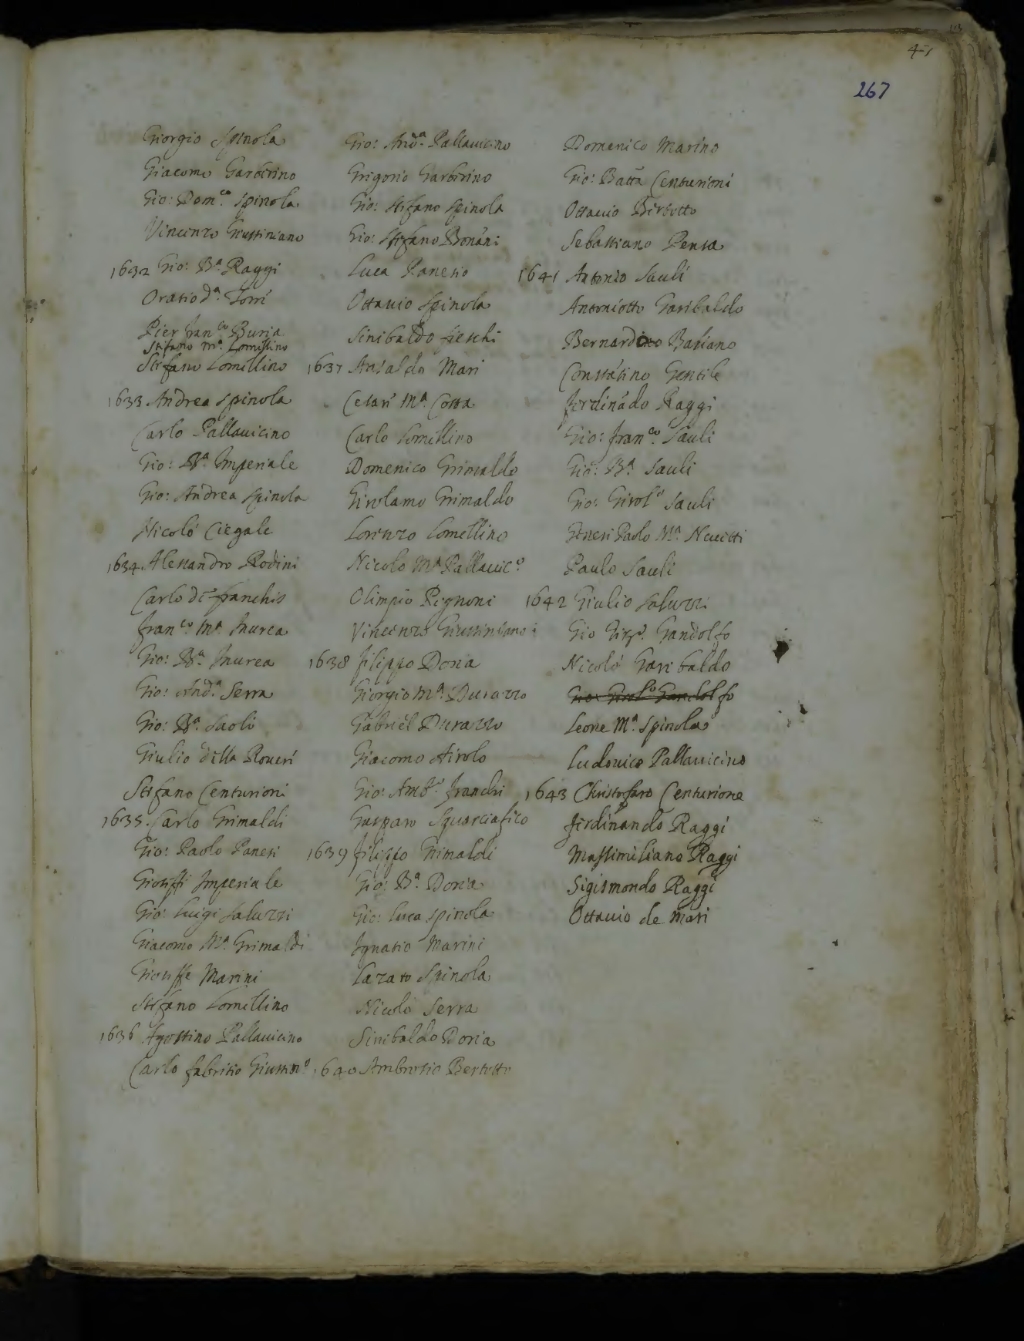 47
267
Giorgio Spinola
Giacomo Garbirino
Gio: Dom.co Spinola
Vincenzo Giustiniano
1632 Gio: B.a Raggi
Oratio d.a Torri
Pier fran.co Buria
Stefano M.a Lomillino
Stefano Lomillino
1633 Andrea Spinola
Carlo Pallavicino
Gio: B.a Imperiale
Gio: Andrea Spinola
Nicolò Ciegale
1634 Alessandro Rodini
Carlo de franchis
fran.co M.a Inurea
Gio: B.a Inurea
Gio: And.a Serra
Gio: B.a Saoli
Giulio della Roueri
Stefano Centurioni
1635 Carlo Grimaldi
Gio: Paolo Panesi
Gioseffi Imperiale
Gio: Luigi Saluzzi
Giacomo M.a Grimaldi
Gioseffe Marini
Stefano Lomillino
1636 Agostino Pallauicino
Carlo fabritio Giustin.o
Gio: Pallauicino
Grigorio Garbirino
Gio: Stefano Spinola
Gio: Stefano Bonãni
Luca Panesio
Ottauio Spinola
Sinibaldo fieschi
1637 Ansaldo Mari
Cesari M.a
Carlo Lomillino
Domenico Grimaldo
Girolamo Grimaldo
Lorenzo Lomellino
Nicolo M.a Pallauic.o
Olimpio Pignoni
Vincenzo Giustiniano
1638 filippo Doria
Giorgio M.a Durazzo
Gabriel Durazzo
Giacomo Airolo
Gio: Amb.o franchi
Gasparo Squarciafico
1639 filippo Grimaldi
Gio: B.a Doria
Gio: Luca Spinola
Ignatio Marini
Lazaro Spinola
Nicolò Serra
Sinibaldo Doria
1640 Ambrosio Bertotto
Domenico Marino
Gio: Batta Centurioni
Ottauio
Sebastiano Pensa
1641 Antonio Sauli
Antoniotto Garibaldo
Bernardo Basiano
Constãtino Gentile
ferdinãdo Raggi
Gio: fran.co Sauli
Gio: B.a Sauli
Gio: Girol.o Sauli
Paolo M.a
Paulo Sauli
1642 Giulio Saluzzi
Gio Gandolfo
Nicolò Garibaldo
Leone M.a Spinola
Ludouico Pallauicino
1643 Christofaro Centurione
ferdinando Raggi
Massimiliano Raggi
Sigismondo Raggi
Ottauio de Mari